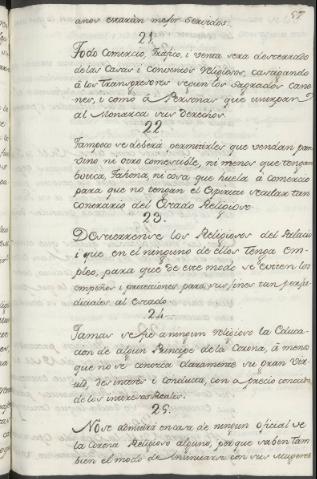 57
anos estarán mejor servidos.
21.
Todo Comercio, tráfico, i venta sera desterrado
de las Casas i conventos religiosos, castigando
á los Transgresores segun los Sagrados cano
nes, i como á Personas que usurpan
al Monarca sus derechos.
22
Tampoco se deberá permitirles que vendan pan
vino ni otro comestible, ni menos que tengan
botica, tahona, ni cosa que huela á comercio
para que no tengan el espiritu secular tan
contrario del Estado Religioso.
23.
Destierrense los Religiosos del Palacio
i que en el ninguno de ellos tenga em-
pleo, para que de este modo se eviten los
empeños i pretenciones para sus fines tan perju
diciales al estado
24.
Jamas se fie a ningun religioso la Educa-
cion de algun Principe de la Corona, á menos
que no se conosca claramente su gran Vir
tud, des interes i conducta, con aprecio
de los intereses Reales.
25.
No se admitirá en casa de ningun oficial de
la Corona Religioso alguno, porque saben tam
bien el modo de insinuarse con sus mugeres